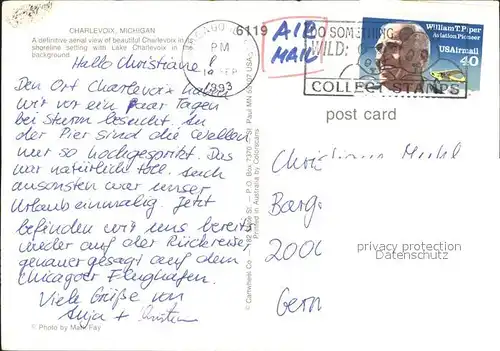 CHARLEVOIX, MICHIGAN
A definitive aerial view of beautiful Charlevoix in its
shoreline setting with Lake Charlevoix in the
background.
Hallo Christiane!
Den Ort Charlevoix haben
wir vor ein paar Tagen
bei Sturm besucht. An
der Pier sind die Wellen
nur so hochgespritzt. Das
war natürlich toll. Auch
ansonsten war unser
Urlaub einmalig. Jetzt
befinden wir uns bereits
wieder auf der Rückreise,
genauer gesagt auf dem
Chicagoer Flughafen.
Viele Grüße von
Anja +
© Photo by Mari Fay
6119
PM
SEP
1993
AIR
MAIL
DO SOMETHING
WILD:
COLLECT STAMPS
William T. Piper
Aviation Pioneer
USAirmail
40
© Cartwheel Co. St. Paul MN USA P.O. Box 7370
Printed in Australia by Colorscans
post card
Christiane
Barg
200
Germ
privacy protection
Datenschutz